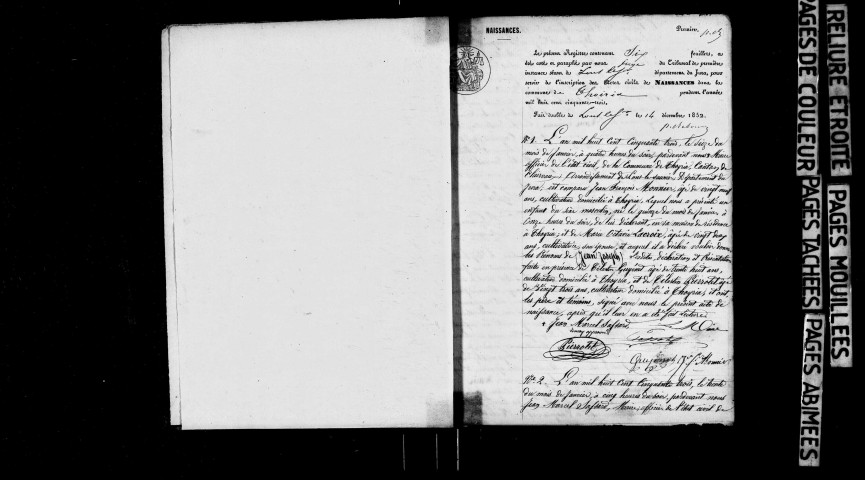 NAISSANCES.
Le présent Registre contenant Six feuillets, a
été coté et paraphé par nous Juge du Tribunal de première
instance séant de Lons le S. département du Jura, pour
servir à l'inscription des Actes civils de NAISSANCES dans la
commune de Thoiria pendant l'année
mil huit cent cinquante-trois.
Fait double de Lons le S. le 14 décembre 1852.
N° 1. L'an mil huit cent cinquante trois, le seize du
mois de janvier, à quatre heures du soir, pardevant nous Maire
officier de l'état civil, de la Commune de Thoyria, Canton de
Clairvaux, arrondissement de Lons le saunier, Département du
Jura, est comparu Jean François Monnier, âgé de vingt neuf
ans, cultivateur domicilié à Thoyria, lequel nous a présenté un
enfant du sexe masculin, né le quinze du mois de janvier, à
onze heures du soir, de lui déclarant, en sa maison de résidence
à Thoyria, et de Marie Octavie Lacroix, âgée de vingt
ans, cultivatrice, son épouse, et auquel il a déclaré vouloir donner
les Prénoms de (Jean Joseph) Lesdites déclaration et Présentation
faites en présence de Célestin Guyant âgé de trente huit ans,
cultivateur domicilié à Thoyria, et de Célestin Pierrotet âgé
de Vingt trois ans, cultivateur domicilié à Thoyria; et ont
les père et témoins, signé avec nous le présent acte de
naissance, après qu'il leur en a été fait Lecture
Jean Marcel
Le Maire
Pierrotet
J. f. Monnier
N° 2. L'an mil huit cent cinquante trois, le trente
du mois de janvier, à cinq heures du soir, pardevant nous
Jean Marcel Maire, officier de l'état civil de
RELIURE ÉTROITE
PAGES DE COULEUR
PAGES MOUILLÉES
PAGES TACHÉES
PAGES ABIMÉES